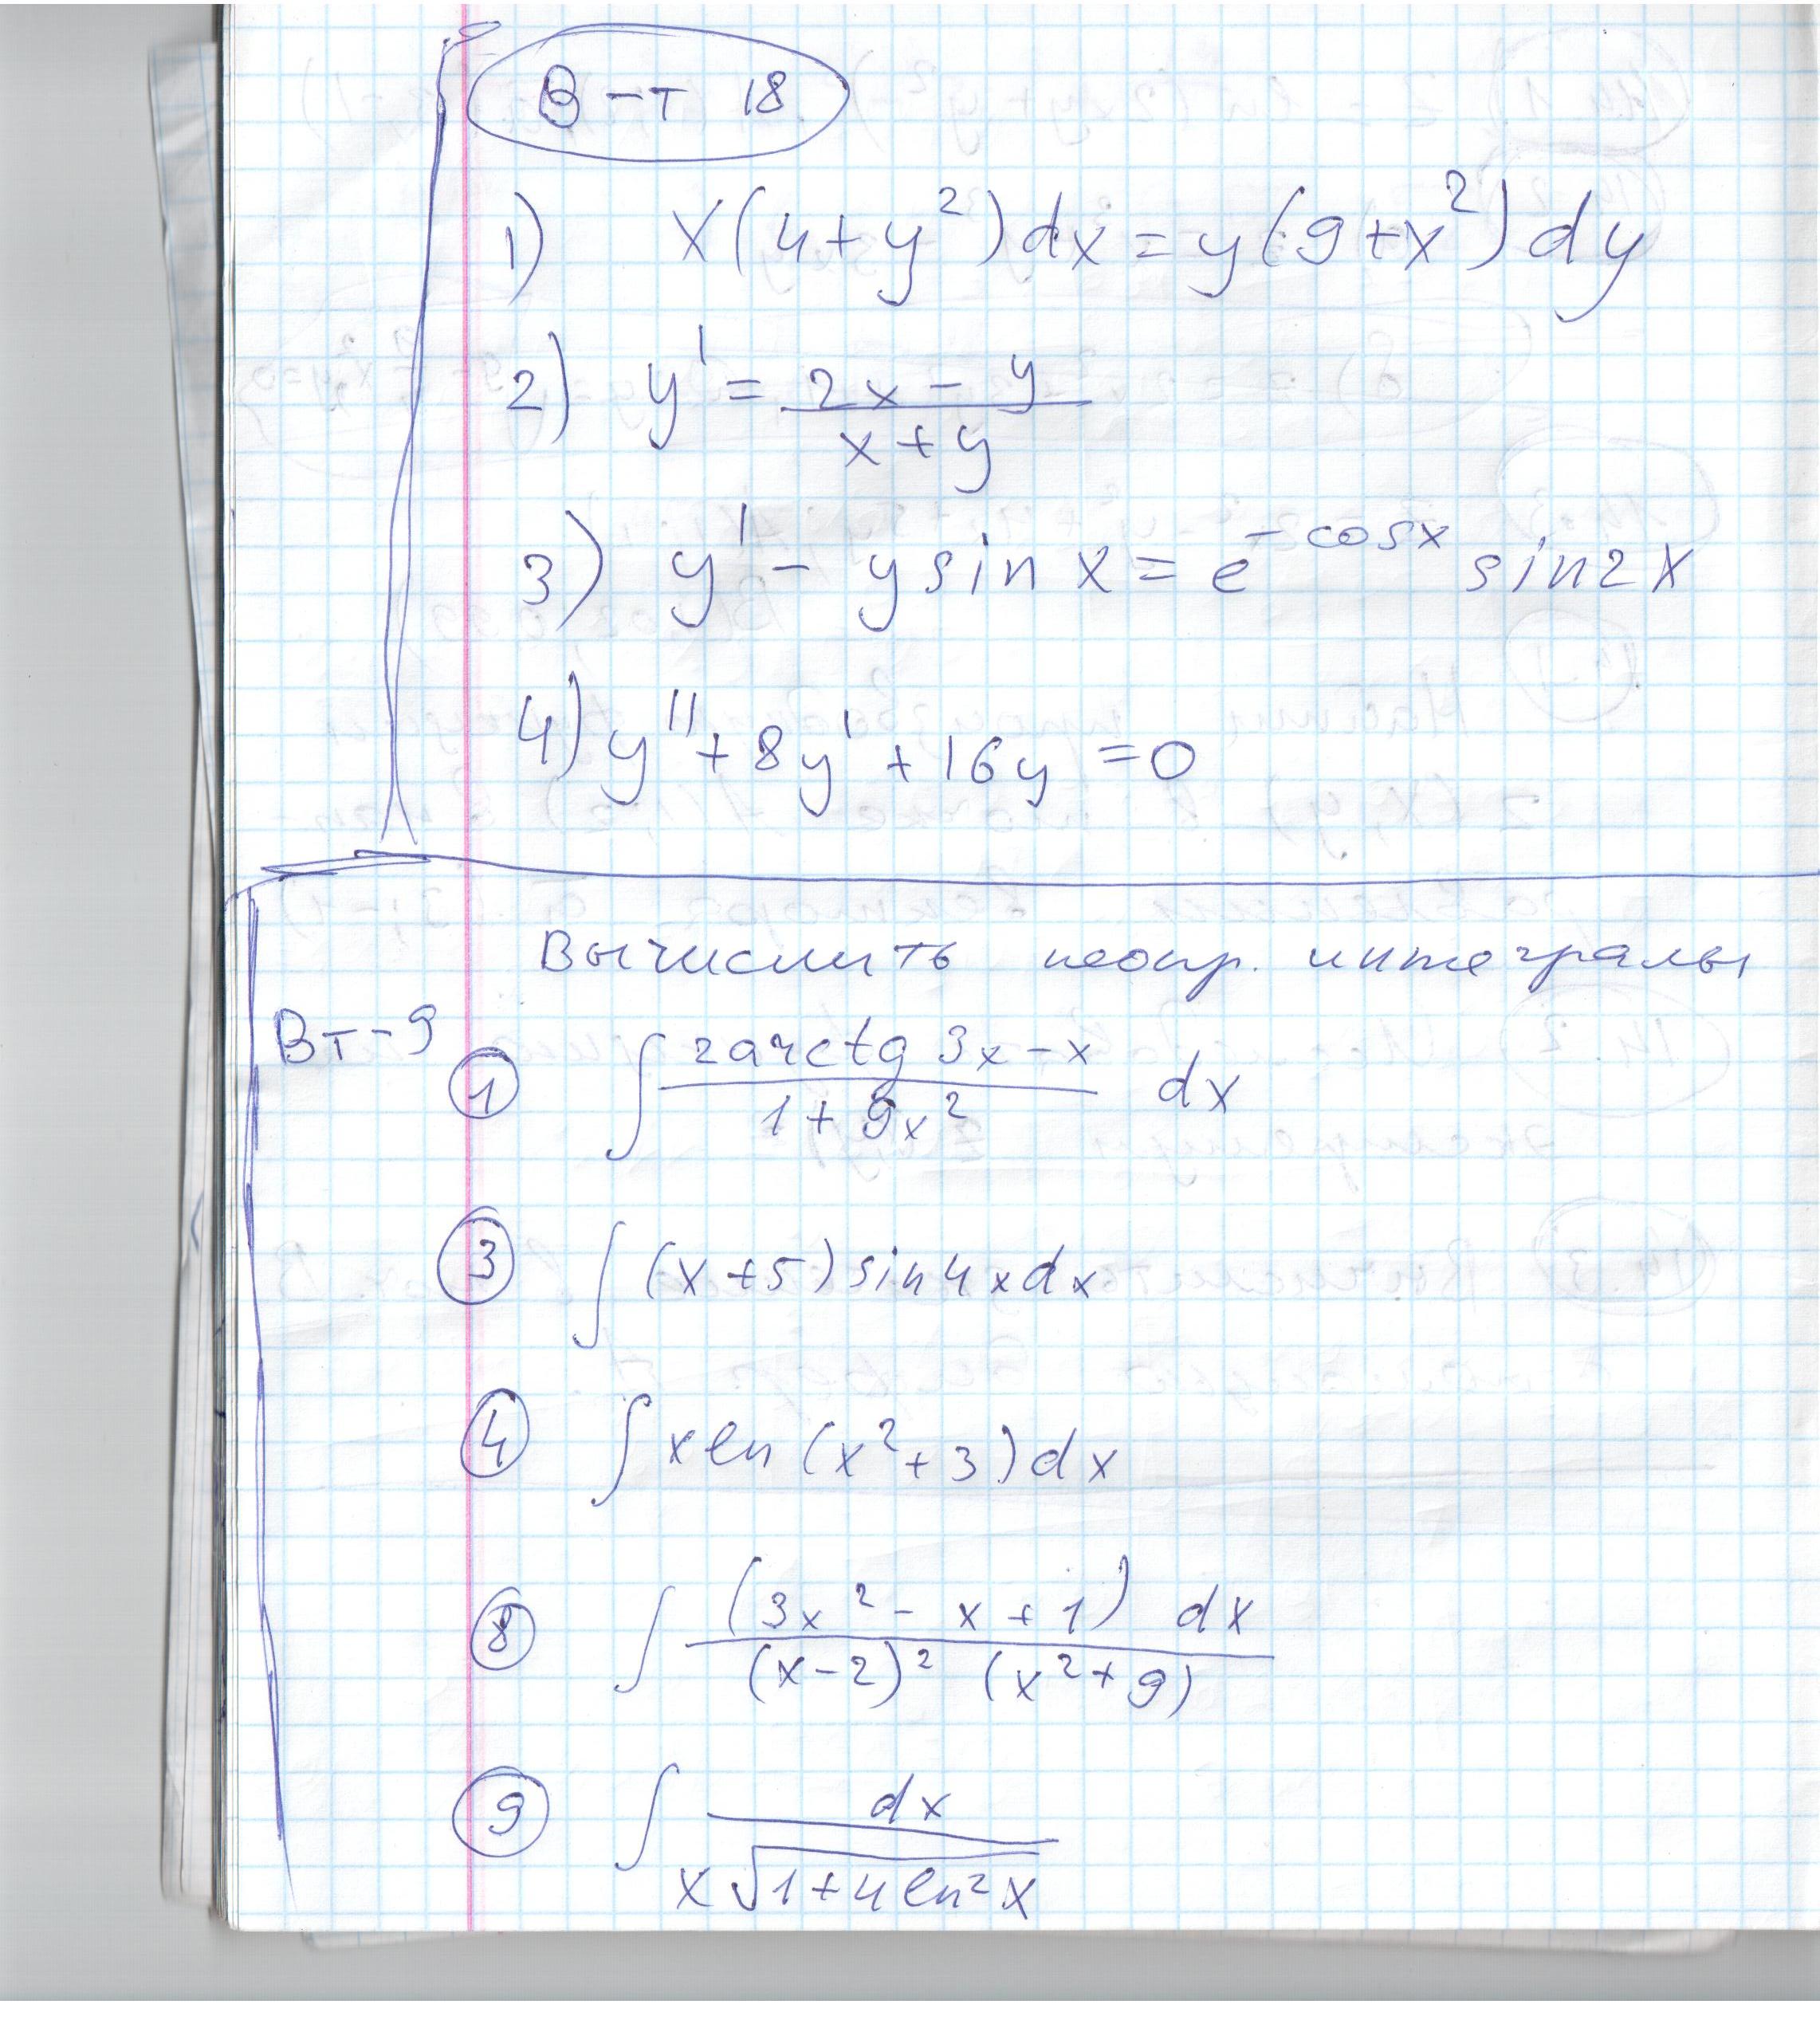 В-т 18
1) x(4+y²)dx=y(9+x²)dy
2) y' = (2x-y)/(x+y)
3) y' - y sin x = e^(-cosx) sin2x
4) y'' + 8y' + 16y = 0
Вычислить неопр. интегралы
Вт-9
1 ∫ (2arctg 3x-x)/(1+9x²) dx
3 ∫ (x+5) sin4x dx
4 ∫ x ln (x²+3) dx
8 ∫ (3x²-x+1) dx/((x-2)² (x²+9))
9 ∫ dx/(x√(1+4ln²x))